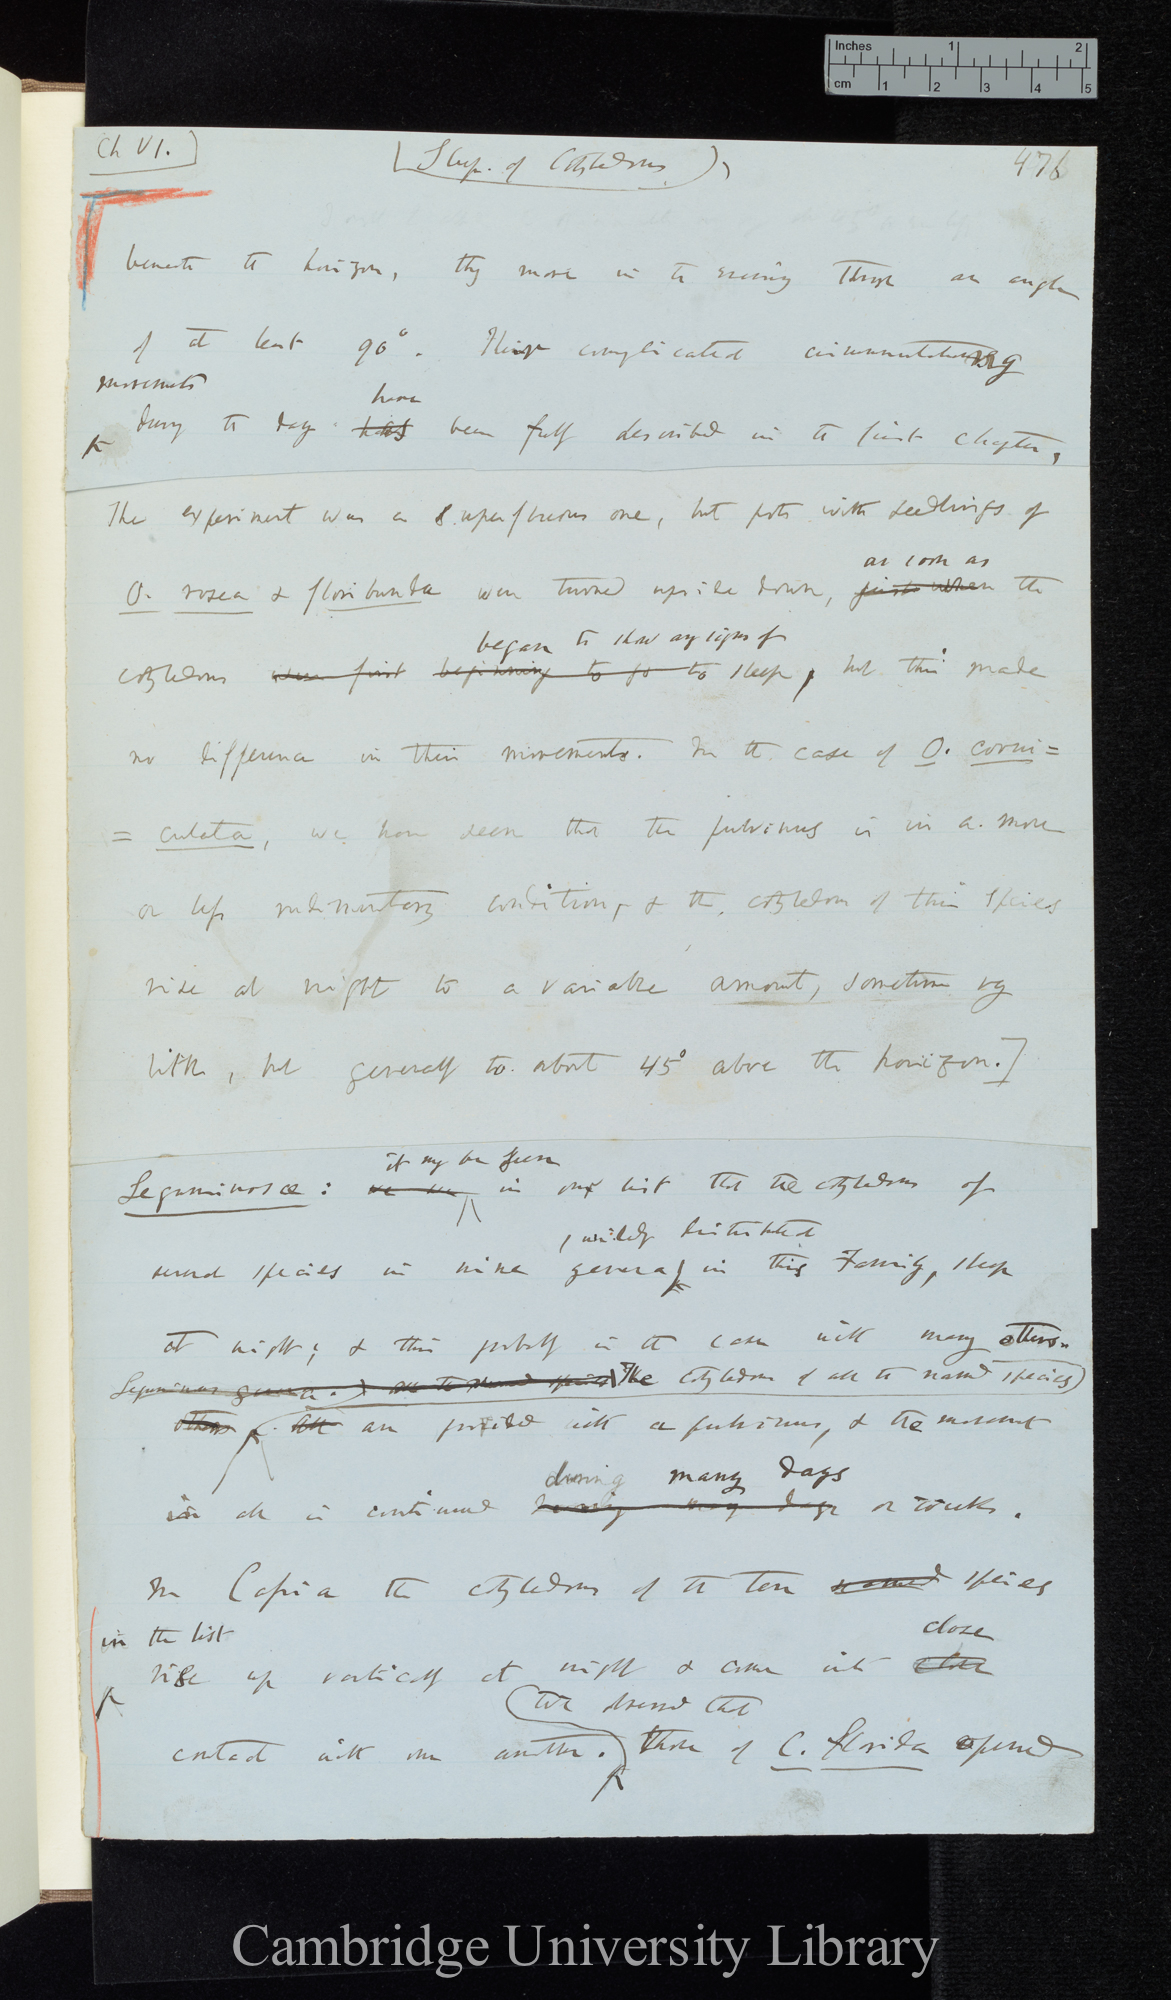 Inches 1 2
cm 1 2 3 4 5
Ch VI.]
(Sleep. of Cotyledons)
476
beneath the horizon, they move in the evening through an angle
of at least 90°. Their complicated circumnutating
movements
have
during the day has been fully described in the first chapter,
The experiment was a superfluous one, but pots with seedlings of
as soon as
O. rosea & floribunda were turned upside down, just when the
began to show any signs of
cotyledons were first beginning to go to sleep, but this made
no difference in their movements. In the case of O. corni=
= culata, we have seen that the pulvinus is in a more
or less rudimentary condition, & the cotyledons of this species
rise at night to a variable amount, sometimes very
little, but generally to about 45° above the horizon.]
it may be seen
Leguminosæ: we see in our list that the cotyledons of
, widely distributed
several species in nine genera, in this Family, sleep
at night; & this probably is the case with many others.
Leguminous genera. All the named species The cotyledons of all the named species)
others. All are provided with a pulvinus, & the movement
during many days
in all is continued during many days or weeks.
In Cassia the cotyledons of the ten named species
in the list
close
rise up vertically at night & come into close
We observed that
contact with one another. Those of C. florida opened
Cambridge University Library